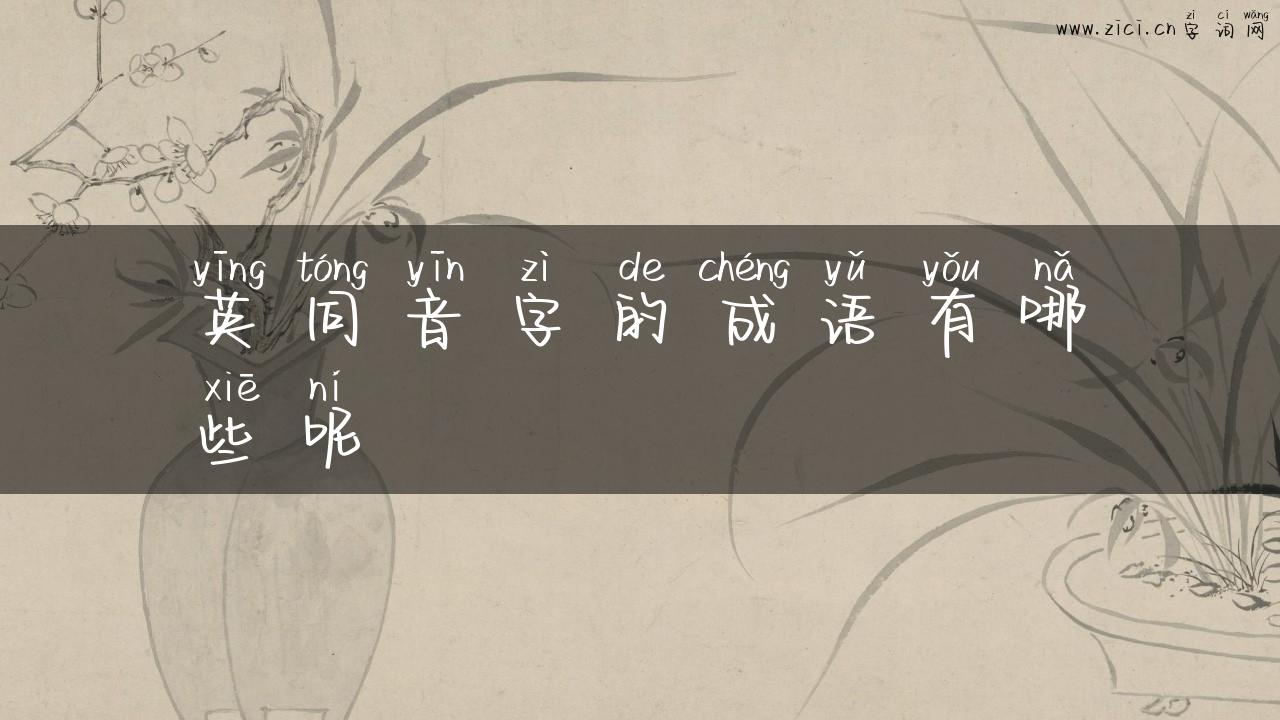 zì cí wǎng
www.zici.cn 字词网
yīng tóng yīn zì de chéng yǔ yǒu nǎ
英同音字的成语有哪
xiē ní
些呢